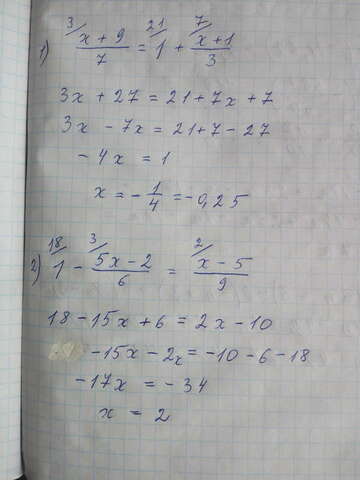 1) ³⁄ (x + 9)/7 = ²¹⁄ 1 + ⁷⁄ (x + 1)/3
3x + 27 = 21 + 7x + 7
3x - 7x = 21 + 7 - 27
- 4x = 1
x = - 1/4 = - 0,25
2) ¹⁸⁄ 1 - ³⁄ (5x - 2)/6 = ²⁄ (x - 5)/9
18 - 15x + 6 = 2x - 10
-15x - 2x = -10 - 6 - 18
-17x = - 34
x = 2